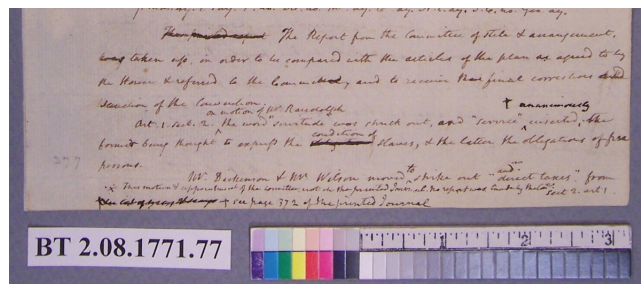 The Report from the Committee of stile & arrangement,
was taken up, in order to be compared with the articles of the plan as agreed to by
the House & referred to the Committee, and to receive the final corrections and
sanction of the Convention.
on motion of Mr. Randolph † unanimously
Art. 1. sect. 2. the word "servitude was struck out, and "service" inserted, the
condition of
former being thought to express the slaves, & the latter the obligations of free
persons.
Mr. Dickenson & Mr. Wilson moved to strike out "and direct taxes" from
sect. 2. art. 1.
This motion & appointment of the committee not in the printed Journal.
† see page 372 of the printed Journal
377
BT 2.08.1771.77
1 2 3